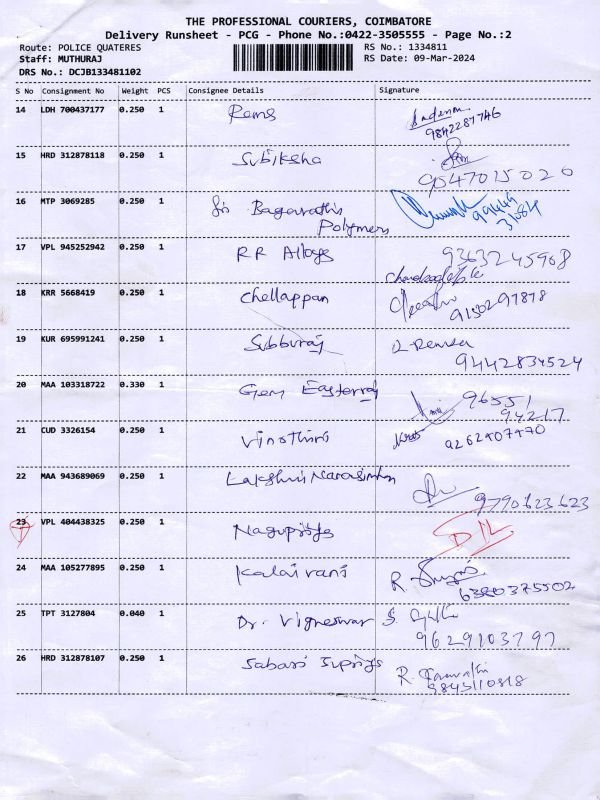 THE PROFESSIONAL COURIERS, COIMBATORE
Delivery Runsheet - PCG - Phone No.:0422-3505555 - Page No.:2
Route: POLICE QUATERES RS No.: 1334811
Staff: MUTHURAJ RS Date: 09-Mar-2024
DRS No.: DCJB133481102
S No Consignment No Weight PCS Consignee Details Signature
14 LDH 700437177 0.250 1 Rams
9842287746
15 HRD 312878118 0.250 1 Subiksha
9047015020
16 MTP 3069285 0.250 1 Sri Bagavathi
Polymers
99449
31084
17 VPL 945252942 0.250 1 RR Alloys 9363245968
18 KRR 5668419 0.250 1 Chellappan
9150297878
19 KUR 695991241 0.250 1 Subburaj
9442834524
20 MAA 103318722 0.330 1 Gem 96551
94217
21 CUD 3326154 0.250 1 Vinothini 9262907970
22 MAA 943689069 0.250 1 Lakshmi Narasimhan
9790623623
23 VPL 404438325 0.250 1 Nagupriya
24 MAA 105277895 0.250 1 Kalaivani R.
6380375502
25 TPT 3127804 0.040 1 Dr. Vigneswar S.
9629103797
26 HRD 312878107 0.250 1 Sabari R.
9843110818